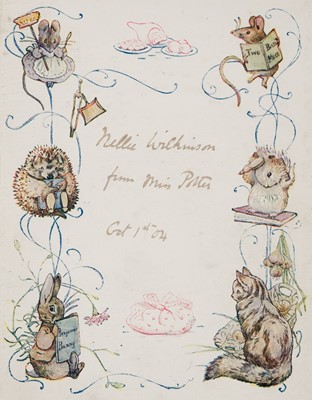 TWO BAD
Nellie Wilkinson
from Miss Potter
Oct 1st 04
BUNNY